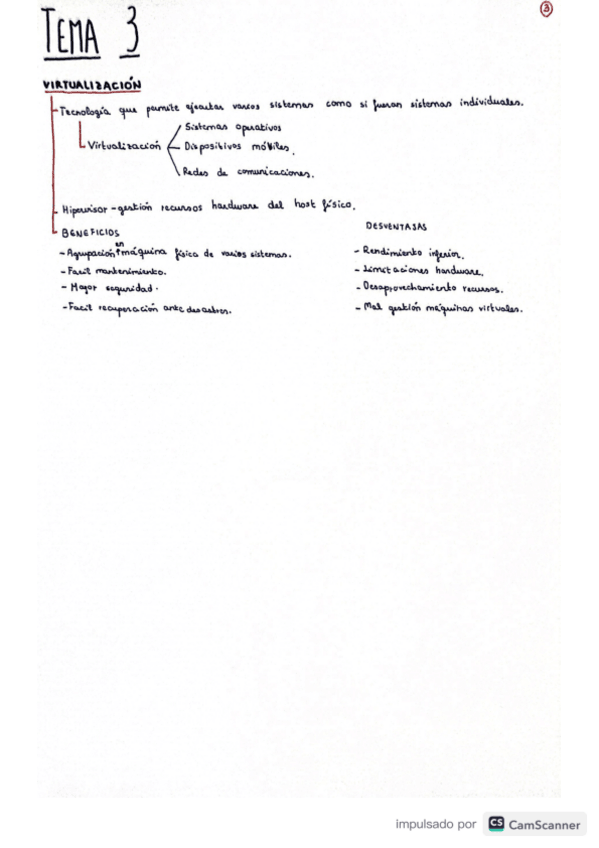 3
TEMA 3
VIRTUALIZACIÓN
- Tecnología que permite ejecutar varios sistemas como si fueran sistemas individuales.
Virtualización
Sistemas operativos
Dispositivos móviles.
Redes de comunicaciones.
- Hipervisor - gestión recursos hardware del host físico.
BENEFICIOS
- Agrupación en máquina física de varios sistemas.
- Facil mantenimiento.
- Mayor seguridad.
- Facil recuperación ante desastres.
DESVENTAJAS
- Rendimiento inferior.
- Limitaciones hardware.
- Desaprovechamiento recursos.
- Mal gestión máquinas virtuales.
impulsado por CS CamScanner